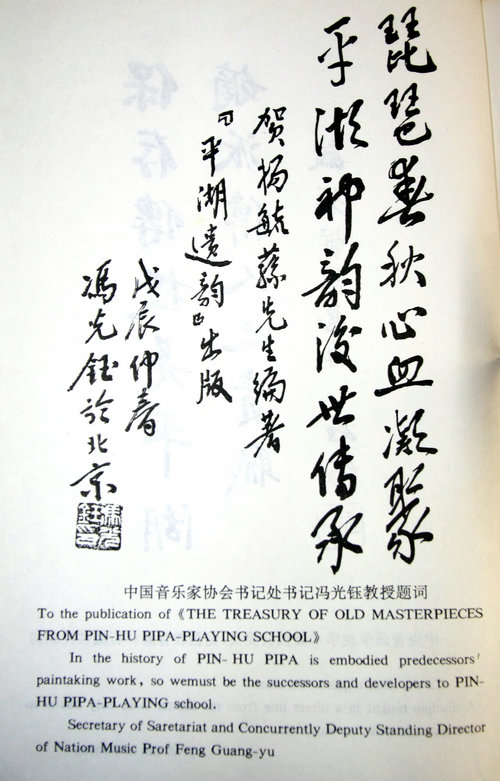 琵琶春秋心血凝聚
平湖神韵後世傳承
贺杨毓蓀先生编著
『平湖遗韵』出版
戊辰仲春
冯光钰於北京
中国音乐家协会书记处书记冯光钰教授题词
To the publication of《THE TREASURY OF OLD MASTERPIECES
FROM PIN-HU PIPA-PLAYING SCHOOL》
In the history of PIN- HU PIPA is embodied predecessors'
paintaking work, so wemust be the successors and developers to PIN-
HU PIPA-PLAYING school.
Secretary of Saretariat and Concurrently Deputy Standing Director
of Nation Music Prof Feng Guang-yu